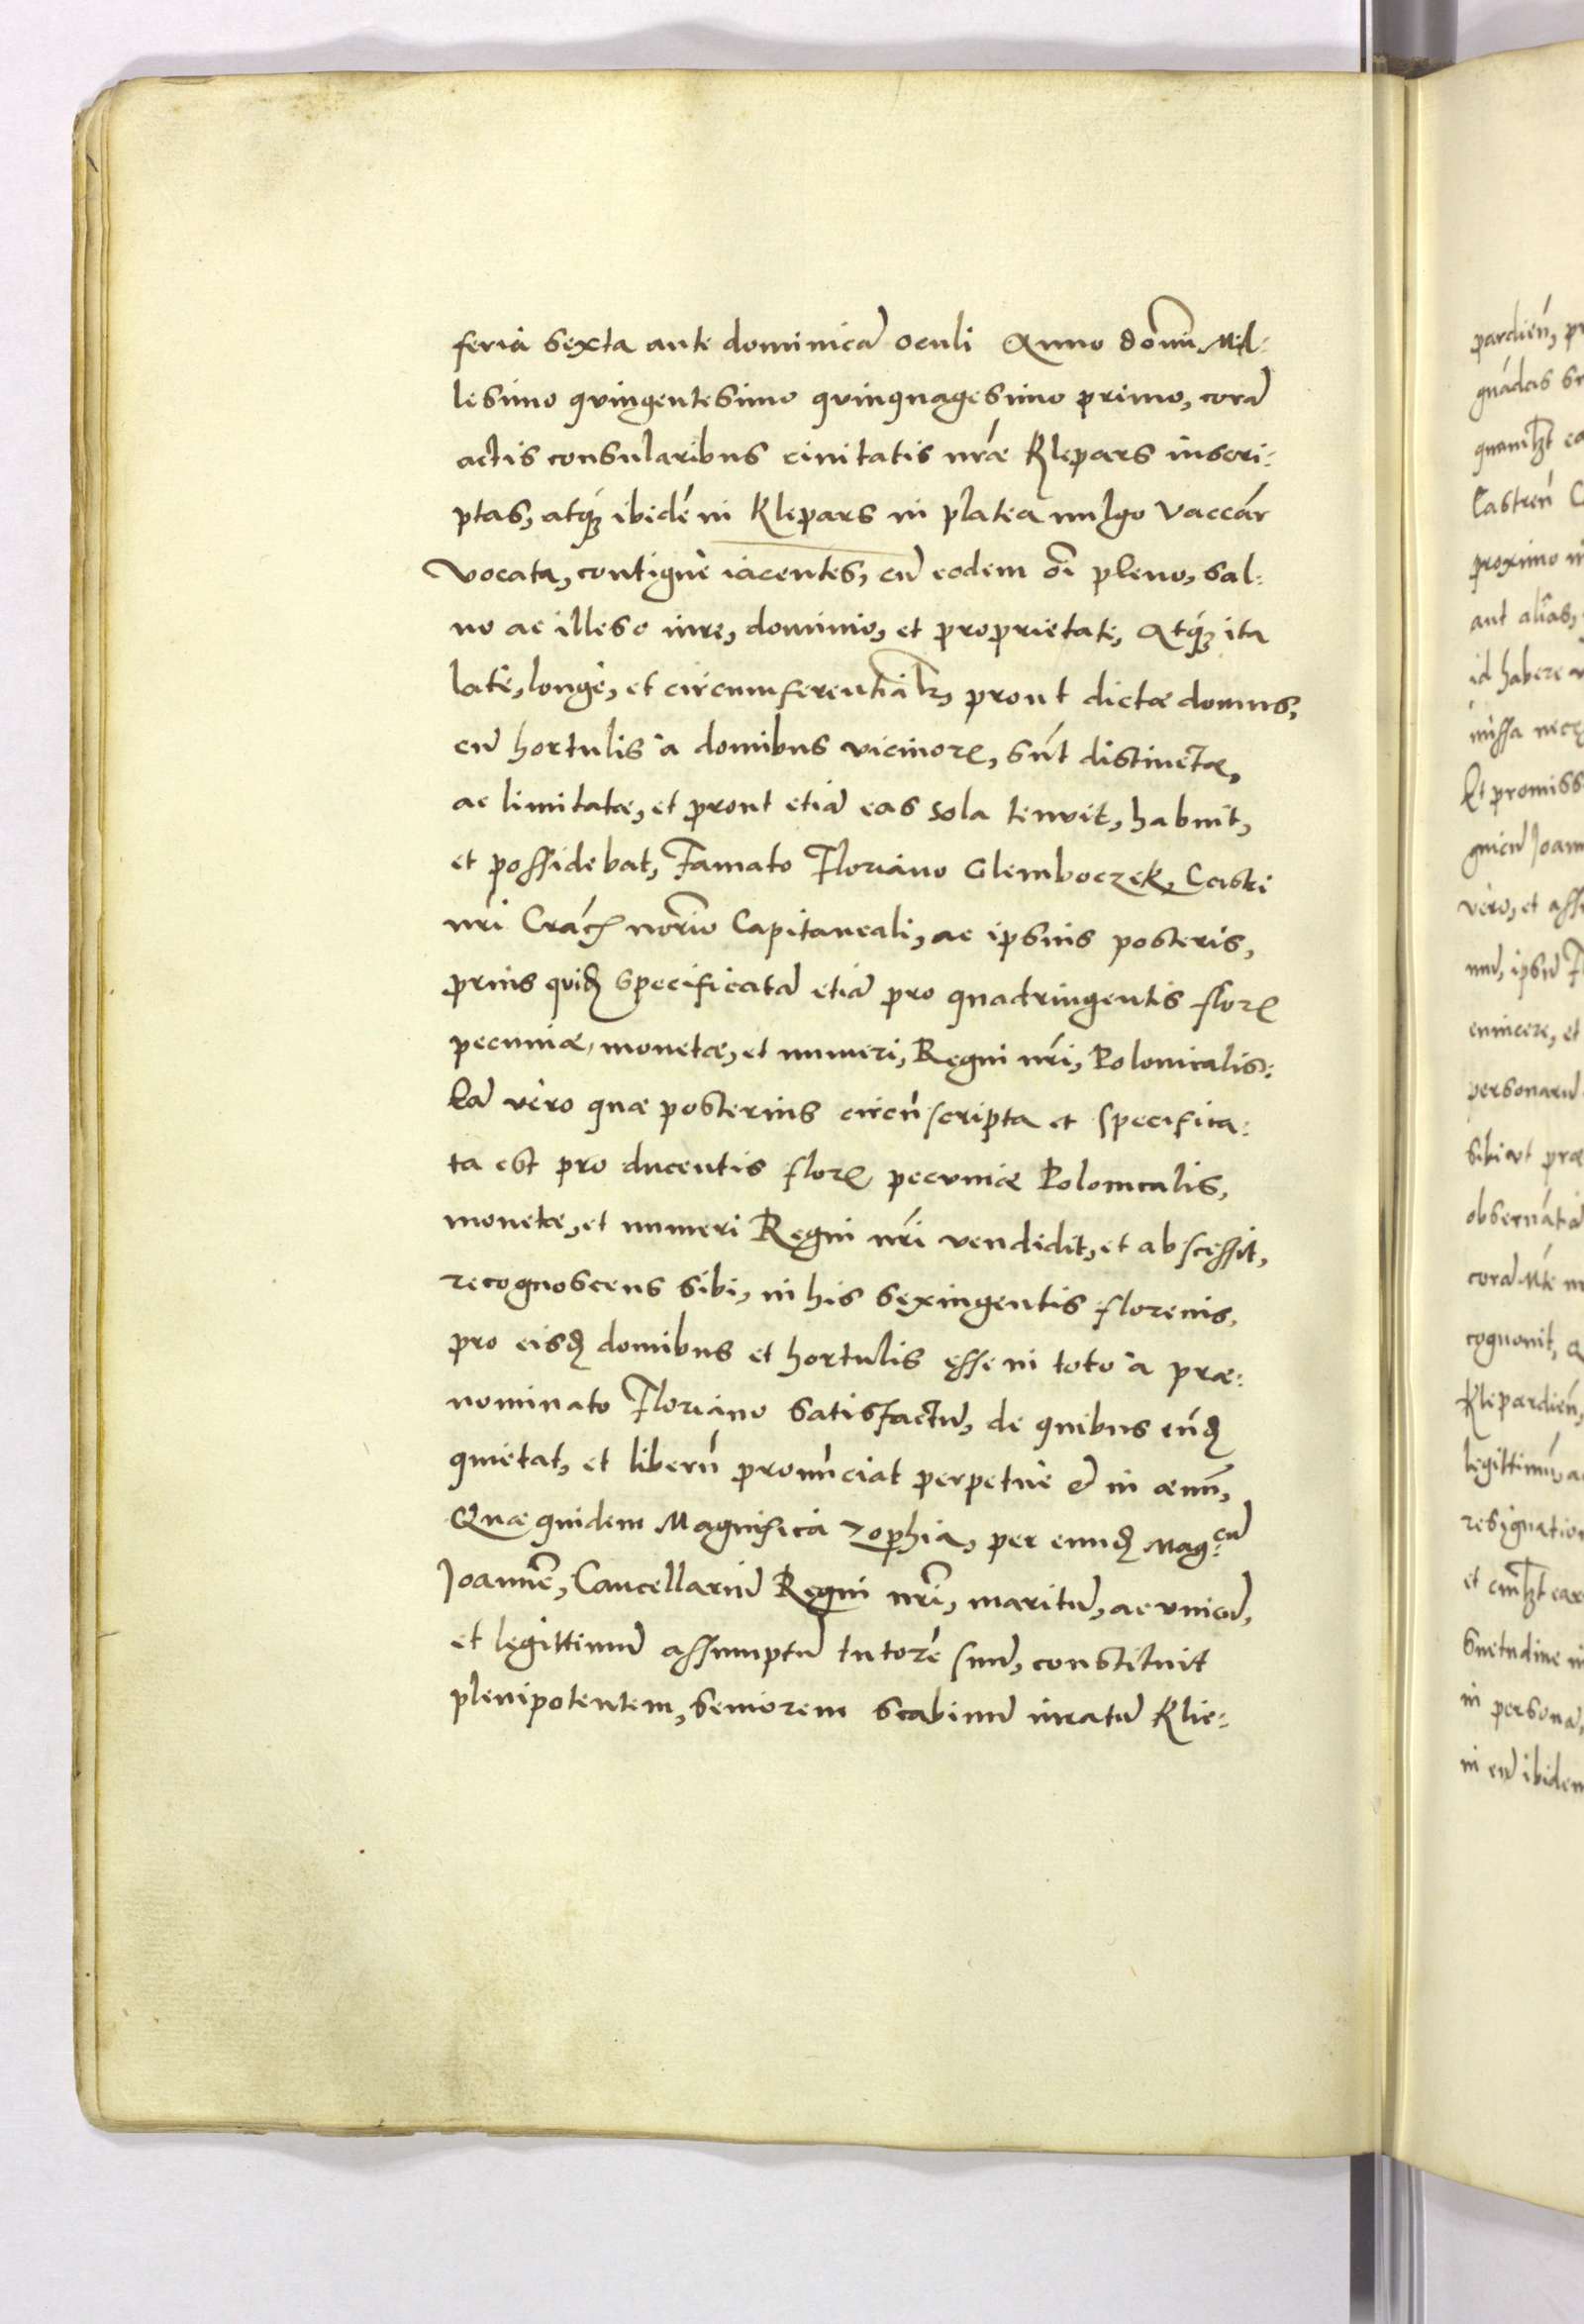 feria sexta ante dominicā oculi Anno domī Mil:
lesimo quingentesimo quinquagesimo primo, corā
actis consularibus ciuitatis nr̄æ Klepars inscri:
ptas, atq́ꝫ ibidē in Klepars in platea uulgo Vaccar̄
vocata, contigue iacentes, cū eodem oī pleno, sal:
uo ac illeso iure, dominio, et proprietate, Atq́ꝫ ita
latè, longè, et circumferentialr̄, prout dictæ domus,
cū hortulis à domibus vicinorꝝ, sūt distinctæ,
ac limitatæ, et prout etiā eas sola tenvit, habuit,
et possidebat, Famato Floriano Glemboczek, Castri
nr̄i Crac̄ norīo Capitaneali, ac ipsius posteris,
prius quiđ specificatā etiā pro quadringentis florꝝ
pecuniæ, monetæ, et numeri, Regni nr̄i, Polonicalis:
Eā vero quæ posterius circūscripta et specifica:
ta est pro ducentis florꝝ pecuniæ Polonicalis,
monetæ, et numeri Regni nr̄i vendidit, et abscessit,
recognoscens sibi, in his sexingentis florenis,
pro eisđ domibus et hortulis esse in toto à præ:
nominato Floriano satisfactū, de quibus eūđ
quietat, et liberū pronūciat perpetue & in æuū,
Quæ quidem Magnifica Zophia, per eundđ Mag:cū
Joannē, Cancellariū Regni nr̄i, maritū, ac unicū,
et legittimū assumptū tutorē suū, constituit
plenipotentem, seniorem scabinū iuratū Klie:
pardień, pr
gnádas s
quamlꝫt ea
Castreń C
proximo i
aut alias,
id habere
missa nec
Et promiss
guicū Joan
vero, et ass
nū, ipsū F
euincere, et
personarū
sibi ut præ
obseruātiā
corā Mte
cognouit,
Klepardień,
legittimū, a
resignation
et cm̄lꝫt ear
suetudine i
in personā,
in eū ibidem